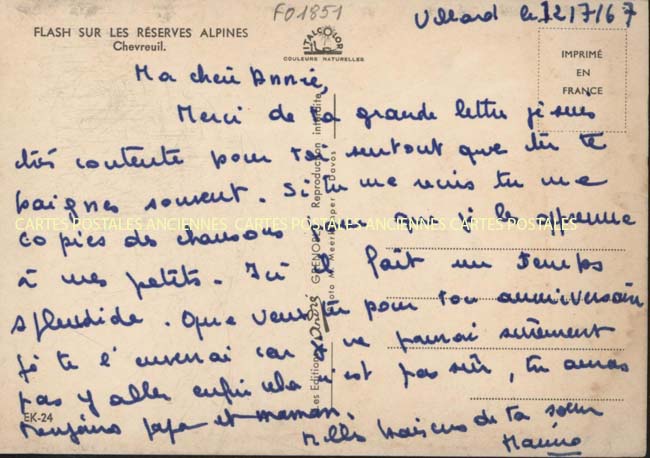 F01851
Villard le 12/7/67
FLASH SUR LES RÉSERVES ALPINES
Chevreuil.
ITALCOLOR
COULEURS NATURELLES
IMPRIMÉ
EN
FRANCE
Ma cheri Annie,
Merci de ta grande lettre je suis
très contente pour toi surtout que tu te
baignes souvent. Si tu me écris tu me
copies des chansons que je les apprenne
à mes petits. Ici il fait un temps
splendide. Que veux tu pour ton anniversaire
je te l'enverrai car je ne pourrai surement
pas y aller enfin cela n'est pas sûr, tu auras
toujours papa et maman.
Mille baisers de ta sœur
CARTES POSTALES ANCIENNES CARTES POSTALES ANCIENNES CARTES POSTALES ANCIENNES
Les Editions André GRENOBLE Reproduction interdite
Photo A. Meerkämper Davos
EK-24